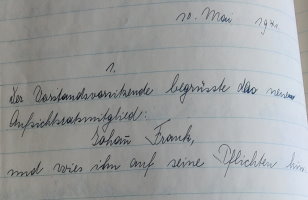 10. Mai 1941
1.
Der Vorstandsvorsitzende begrüsste das neue
Aufsichtsratsmitglied:
Johann Frank,
und wies ihn auf seine Pflichten hin